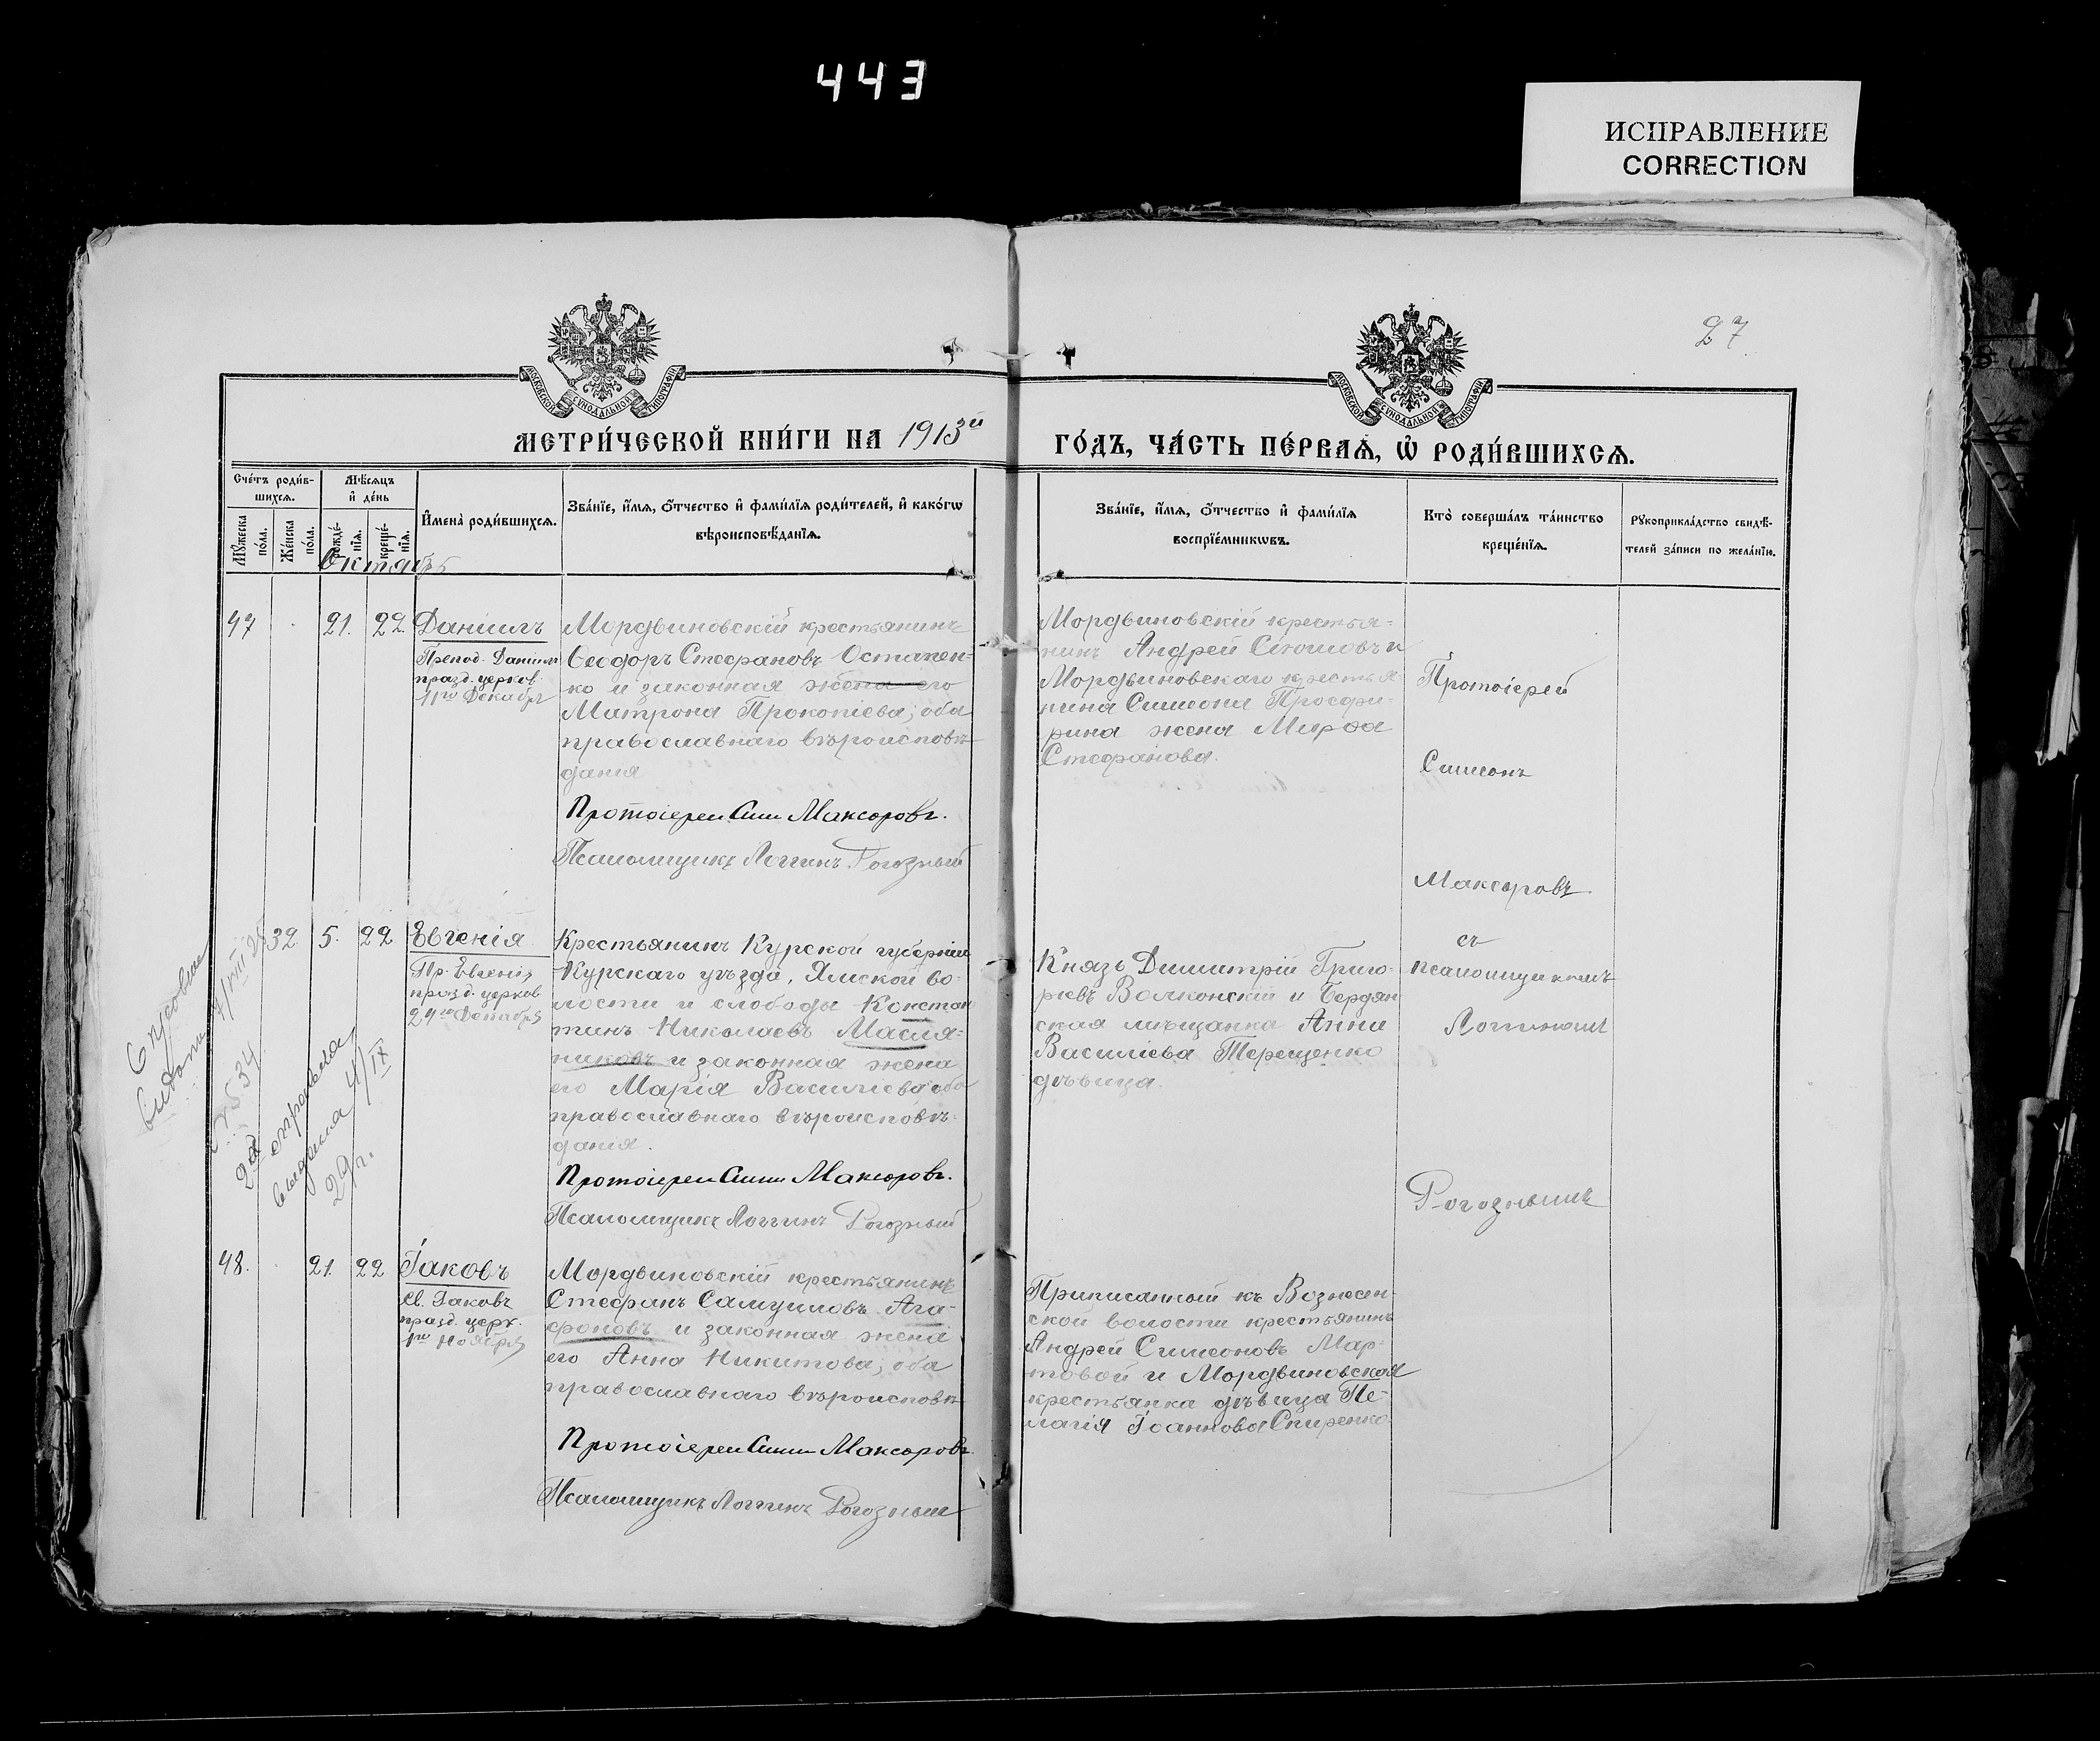 443
ИСПРАВЛЕНИЕ
CORRECTION
27
МОСКОВСКОЙ СѴНОДАЛЬНОЙ ТИПОГРАФІИ
МОСКОВСКОЙ СѴНОДАЛЬНОЙ ТИПОГРАФІИ
МЕТРИ́ЧЕСКОЙ КНИ́ГИ НА 1913й
ГО́ДЪ, ЧА́СТЬ ПЕ́РВАѦ, Ѡ҆ РОДИ́ВШИХСѦ.
Сче́тъ роди́в-
шихсѧ.
Мꙋ́жеска по́ла.
Же́нска по́ла.
Мѣ́сѧцъ
и҆ де́нь
рожде́-
нїѧ.
креще́-
нїѧ.
И҆мена̀ роди́вшихсѧ.
Зва́нїе, и҆́мѧ, ѻ҆́тчество и҆ фами́лїѧ роди́телей, и҆ како́гѡ
вѣроисповѣ́данїѧ.
Зва́нїе, и҆́мѧ, ѻ҆́тчество и҆ фами́лїѧ
воспрїе́мникѡвъ.
Кто̀ соверша́лъ та́инство
креще́нїѧ.
Рꙋкоприкла́дство свидѣ́-
телей за́писи по жела́нїю.
Октябрь
47
21.
22.
Даніилъ
Препод. Даніилъ
празд. церков.
11го Декабря
Мордвиновскій крестьянинъ
Ѳеодоръ Стефановъ Остапен-
ко и законная жена его
Матрона Прокопіева; оба
православнаго вѣроисповѣ-
данія
Протоіерей Сим Максоровъ.
Псаломщикъ Логгинъ Рогозный
Мордвиновскій крестья-
нинъ Андрей и
Мордвиновскаго крестья-
нина Симеона
жена Марѳа
Стефанова.
Протоіерей
Симеонъ
Максоровъ
съ
псаломщикомъ
Логгиномъ
Рогознымъ
32
5.
22
Евгенія
Пр. Евгенія
празд. церков
24го Декабря
Крестьянинъ Курской губерніи
Курскаго уѣзда, Ямской во-
лости и слободы Констан
тинъ Николаевъ Масля-
никовъ и законная жена
его Марія Василіева оба
православнаго вѣроисповѣ-
данія.
Протоіерей Сим Максоровъ.
Псаломщикъ Логгинъ Рогозный
Князь Димитрій Григо-
ріевъ Волконскій и Бердян
ская мѣщанка Анна
Василіева Терещенко
дѣвица.
видъ
2534
2я
выдана 4/IX
29 г.
48.
21.
22
Іаковъ
Св. Іаковъ
празд. церк.
1го Ноября
Мордвиновскій крестьянинъ
Стефанъ Самуиловъ Ага-
фоновъ и законная жена
его Анна Никитова; оба
православнаго вѣроисповѣ
Протоіерей Сим Максоровъ.
Псаломщикъ Логгинъ Рогозный
Приписанный къ Вознесен-
ской волости крестьянинъ
Андрей Симеоновъ Мар-
товой и Мордвиновская
крестьянка дѣвица Пе-
лагія Іоаннова Спиренко